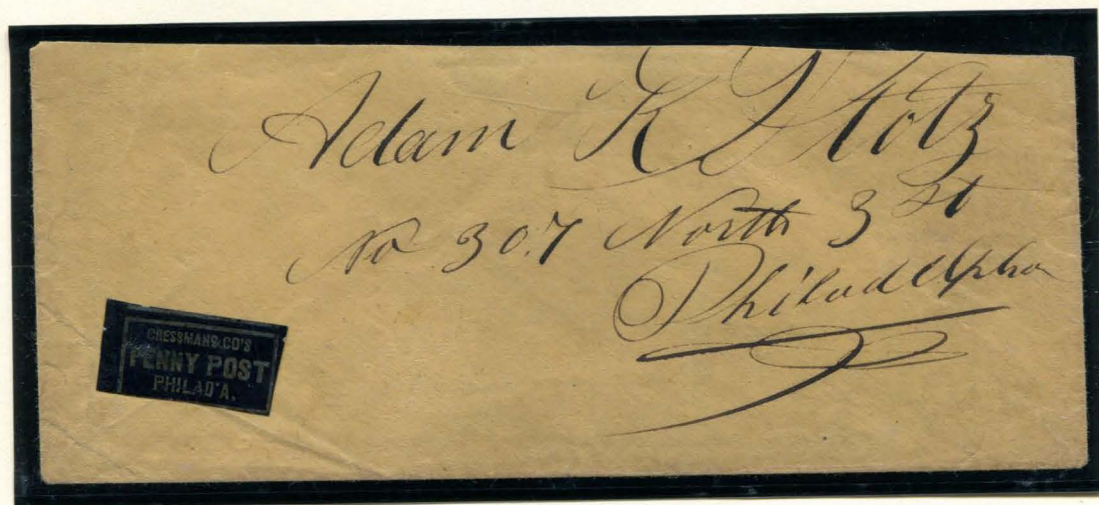 Adam K Stotz
No 307 North 3 St
Philadelpha
CRESSMAN & CO'S
PENNY POST
PHILAD'A.